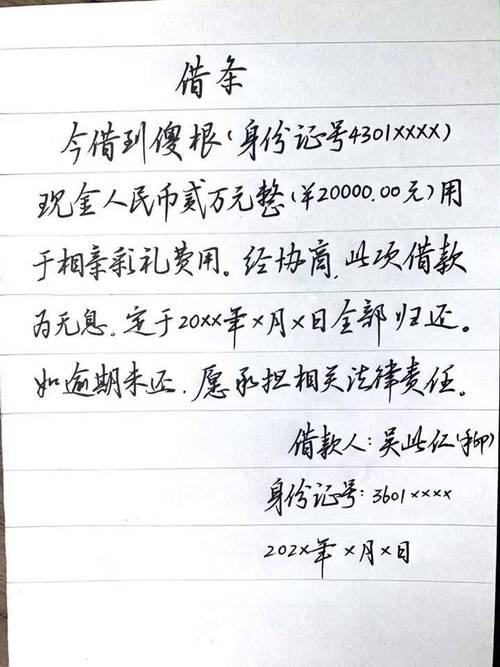 借条
今借到傻根(身份证号4301xxxx)
现金人民币贰万元整(￥20000.00元)用
于相亲彩礼费用。经协商,此项借款
为无息。定于20xx年x月x日全部归还。
如逾期未还,愿承担相关法律责任。
借款人:吴此仁(押)
身份证号:3601xxxx
202x年x月x日